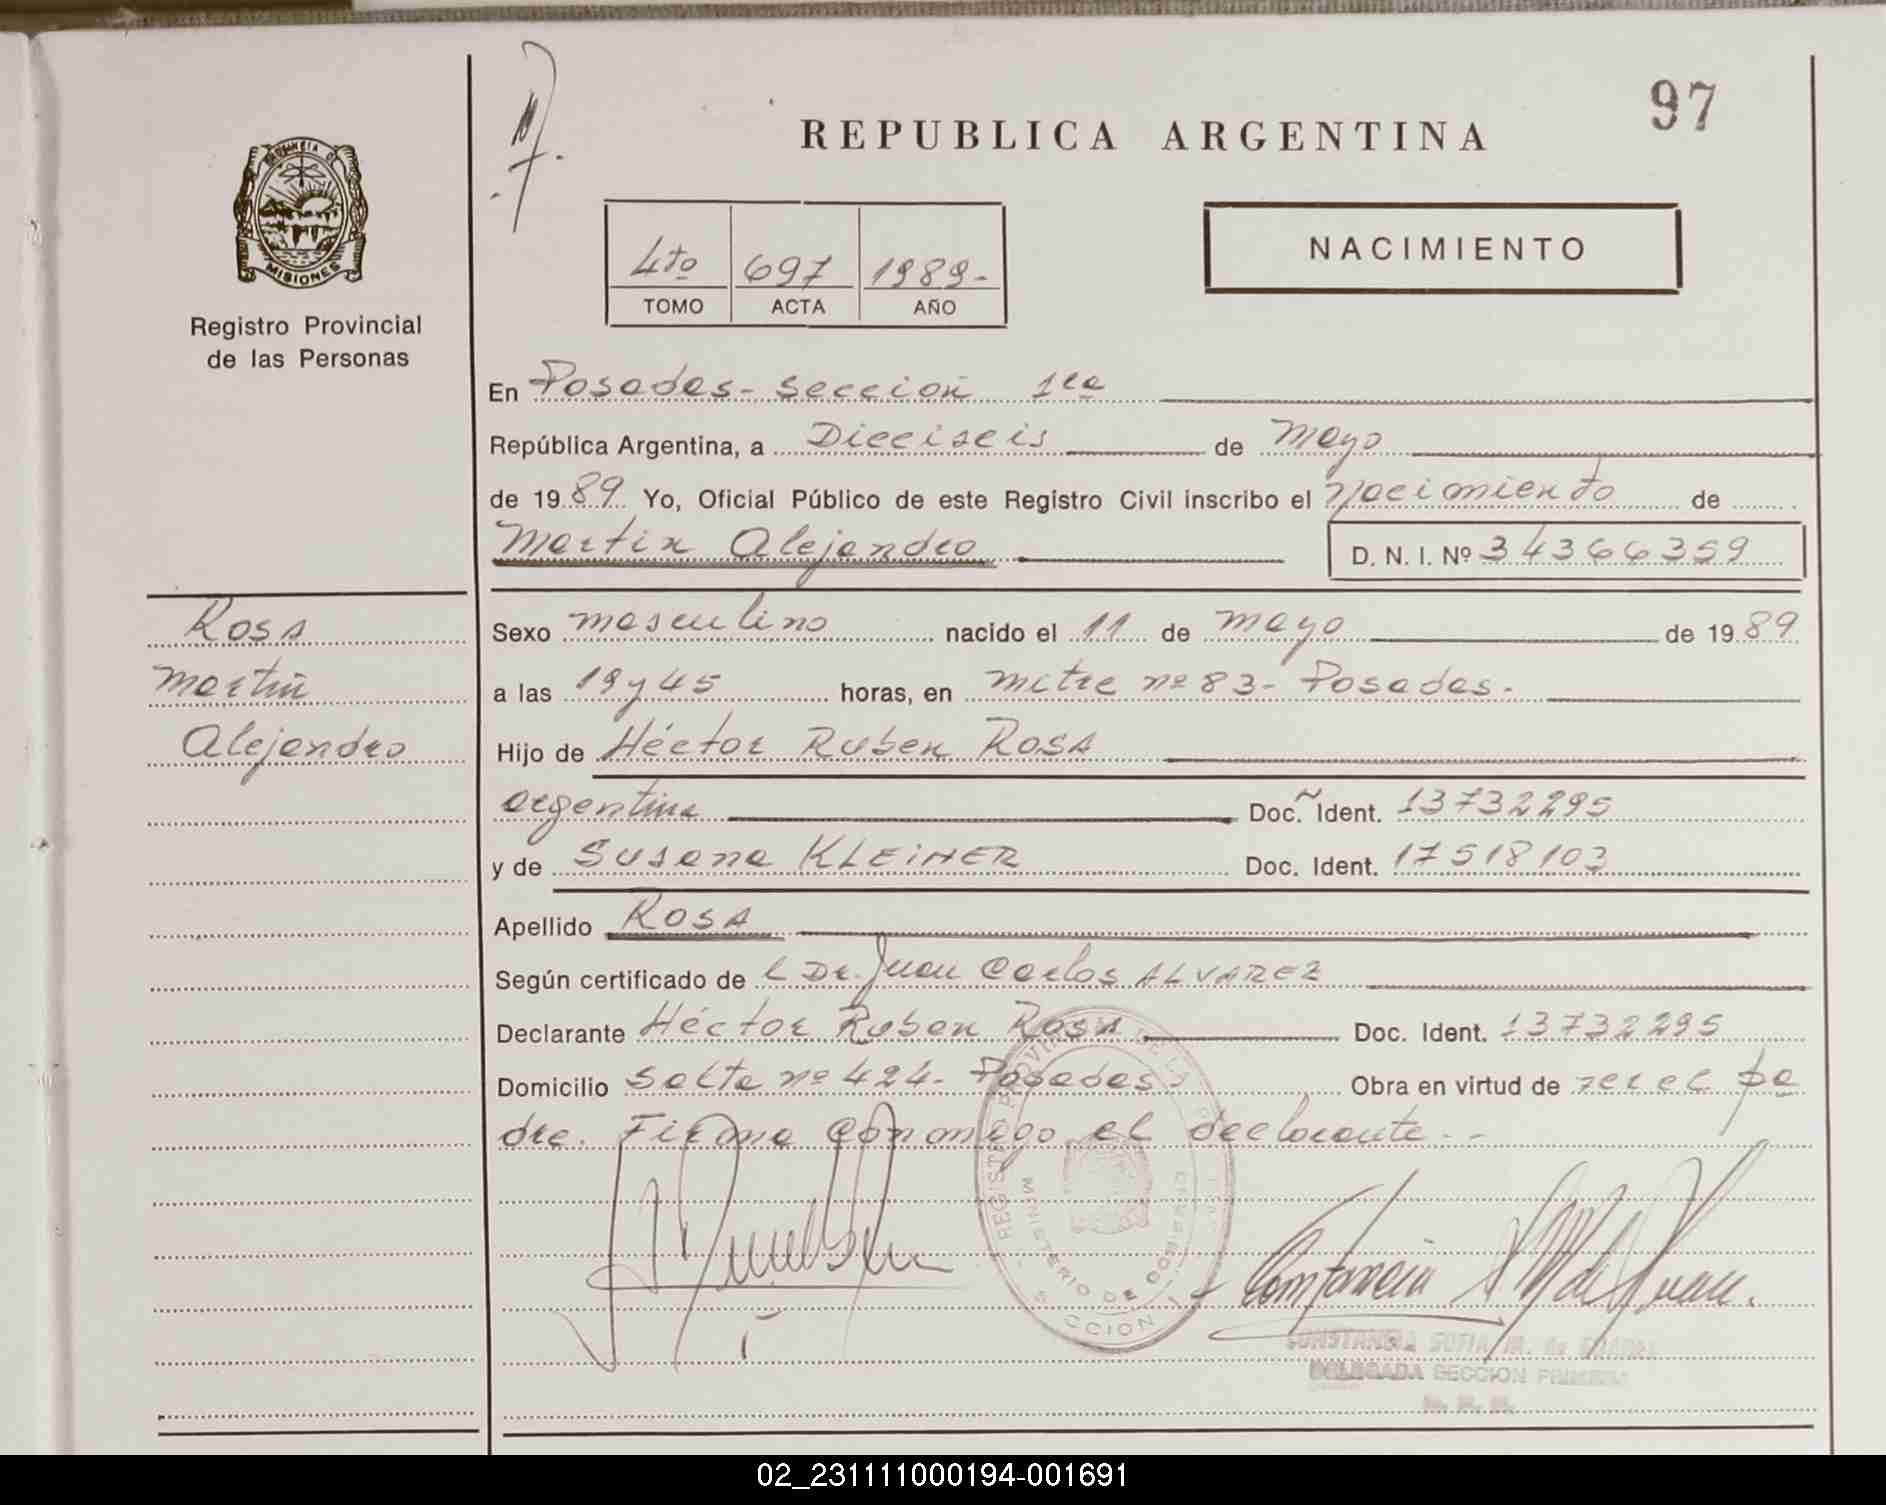 97
REPUBLICA ARGENTINA
PROVINCIA DE
MISIONES
Registro Provincial
de las Personas
4to 697 1989-
TOMO ACTA AÑO
NACIMIENTO
En Posadas- sección 1ra
República Argentina, a Dieciseis de mayo
de 1989 Yo, Oficial Público de este Registro Civil inscribo el nacimiento de
Martin Alejandro D. N. I. Nº 34366359
Rosa
Martin
Alejandro
Sexo masculino nacido el 11 de mayo de 1989
a las 19 y 45 horas, en mitre nº 83- Posadas.
Hijo de Héctor Ruben ROSA
argentina Doc. Ident. 13732295
y de Susana KLEINER Doc. Ident. 17518103
Apellido ROSA
Según certificado de l Dr. Juan Carlos ALVAREZ
Declarante Héctor Ruben Rosa Doc. Ident. 13732295
Domicilio Salta nº 424- Posadas- Obra en virtud de ser el pa
dre. Firma conmigo el declarante.-
REGISTRO PROVINCIAL DE LA
MINISTERIO DE GOBIERNO
SECCION 1
CONSTANCIA SOFIA M. de
DELEGADA SECCION PRIMERA
02_231111000194-001691